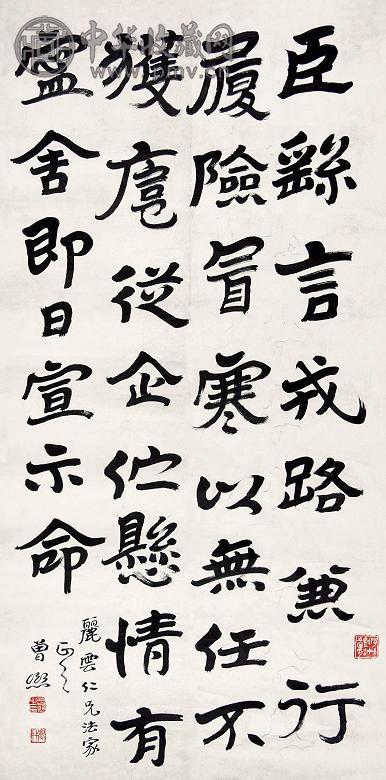 臣繇言戎路兼行
履險冒寒以無任不
獲扈從企伫懸情有
寍舍即日宣示命
麗雲仁兄法家
正之
曾熙
中华收藏网